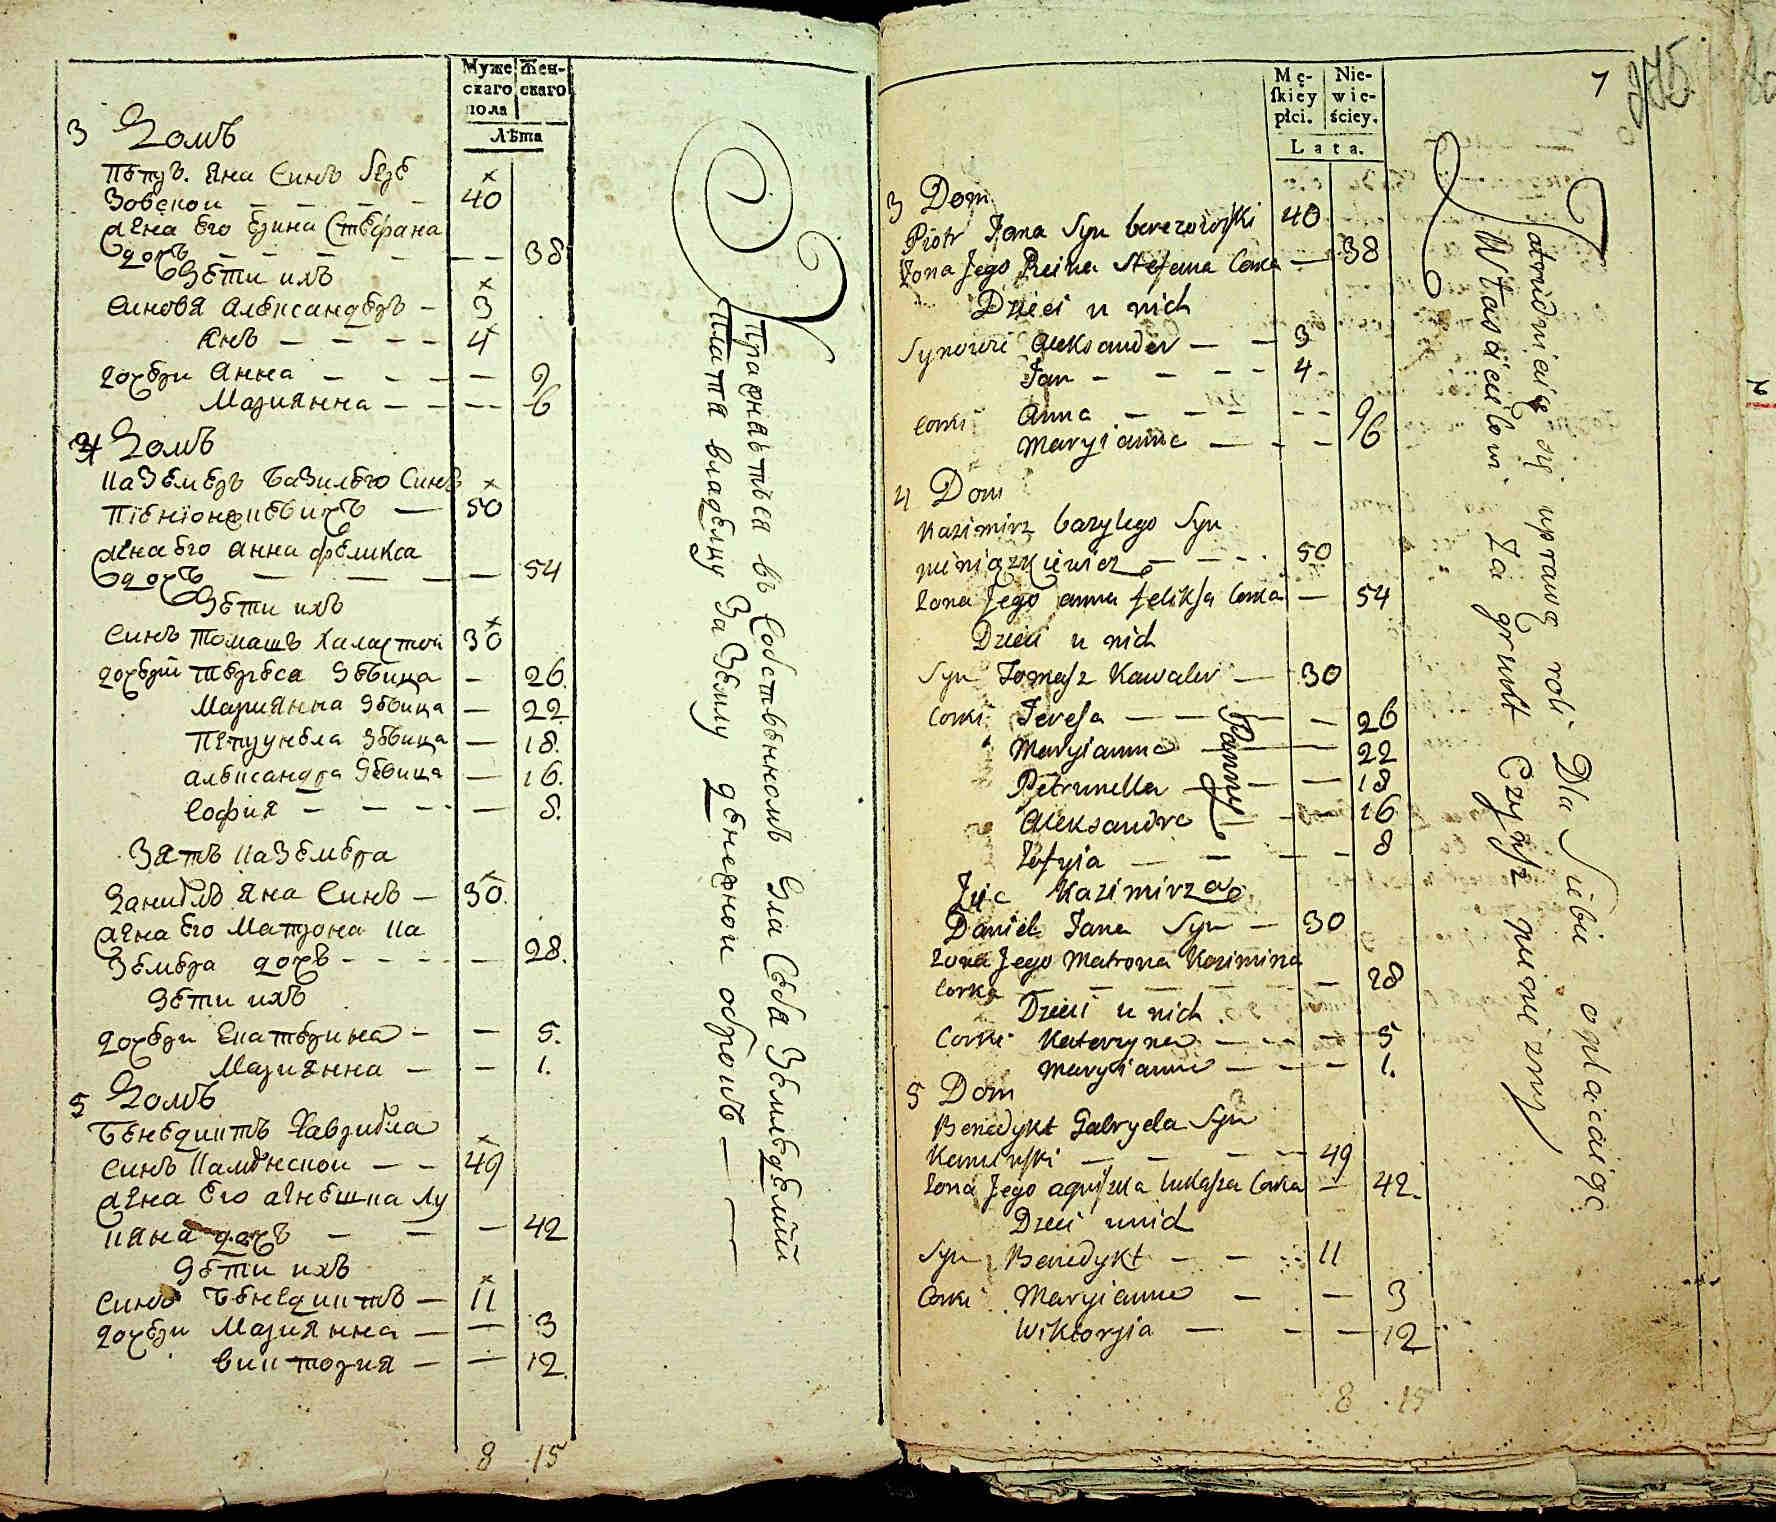 Муже Жен-
скаго скаго
пола
Лѣта
3 Домъ
Петръ Яна Синъ Бере
зовской — — — — 40
Жена его Ерина Стефана
дочъ — — — — 38
Дети ихъ
Синовя Александеръ — 3
Янъ — — — — 4
дочери Анна — — — — 9
Мариянна — — — — 6
4 Домъ
Каземеръ Базилего Синъ
— 50
Жена его Анна Феликса
дочъ — — — — 54
Дети ихъ
Синъ Томашъ Халастой 30
дочерй Тереса Девица — 26.
Мариянна Девица — 22.
Петрунела Девица — 18.
Александра Девица — 16.
София — — — — 8.
Зять Каземера
Даниелъ Яна Синъ — 30.
Жена его Матрона Ка
земера дочъ — — — — 28.
Дети ихъ
дочери Екатерина — — 5.
Мариянна — — 1.
5 Домъ
Бенедиктъ Гавриела
Синъ Каменской — — 49
Жена его Агнешка Лу
каша дочъ — — — 42
Дети ихъ
Синъ Бенедиктъ — 11
дочери Мариянна — — 3
Виктория — — 12.
8 15
въ Собственномъ Для Себя
Платя владелцу За Землу денежной оброкъ — —
7
Mę- Nie-
skiey wie-
płci. ściey.
Lata.
3 Dom
Piotr Jana Syn berezowski 40
Żona Jego Reina Stefana Corka — 38
Dzieci u nich
Synowie Aleksander — — 3
Jan — — — — 4
Corki Anna — — — — — 9
Maryianna — — — 6
4 Dom
Kazimirz bazylego Syn
pieniązkiewicz — — — 50
Żona Jego anna feliksa Corka — 54
Dzieci u nich
Syn Tomasz Kawaler — 30
Corki Teresa — — — — 26
Maryianna — — 22
Petrunella — — — 18
Panny
Aleksandra — — — 16
Zofyia — — — — 8
Zięć Kazimirza
Daniel Jana Syn — 30
Żona Jego Matrona Kazimirza
Corka — — — — — 28
Dzieci u nich
Corki Katarzyna — — — — 5
Maryianna — — — 1.
5 Dom
Benedykt Gabryela Syn
Kaminski — — — — 49
Żona Jego agniszka lukasza Corka — 42.
Dzieci u nich
Syn Benedykt — — 11
Corki Maryianna — — 3
Wiktoryia — — — 12
8 15
Zatrudnieią się uprawą roli Dla Siebie opłacaiąc
Własćicielowi Za grunt Czynsz pienieżny